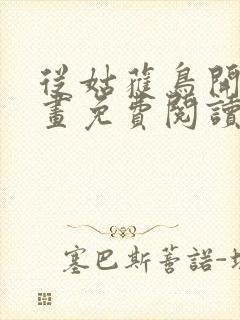 從姑獲鳥開
畫免費閱讀
塞巴斯蒂諾-